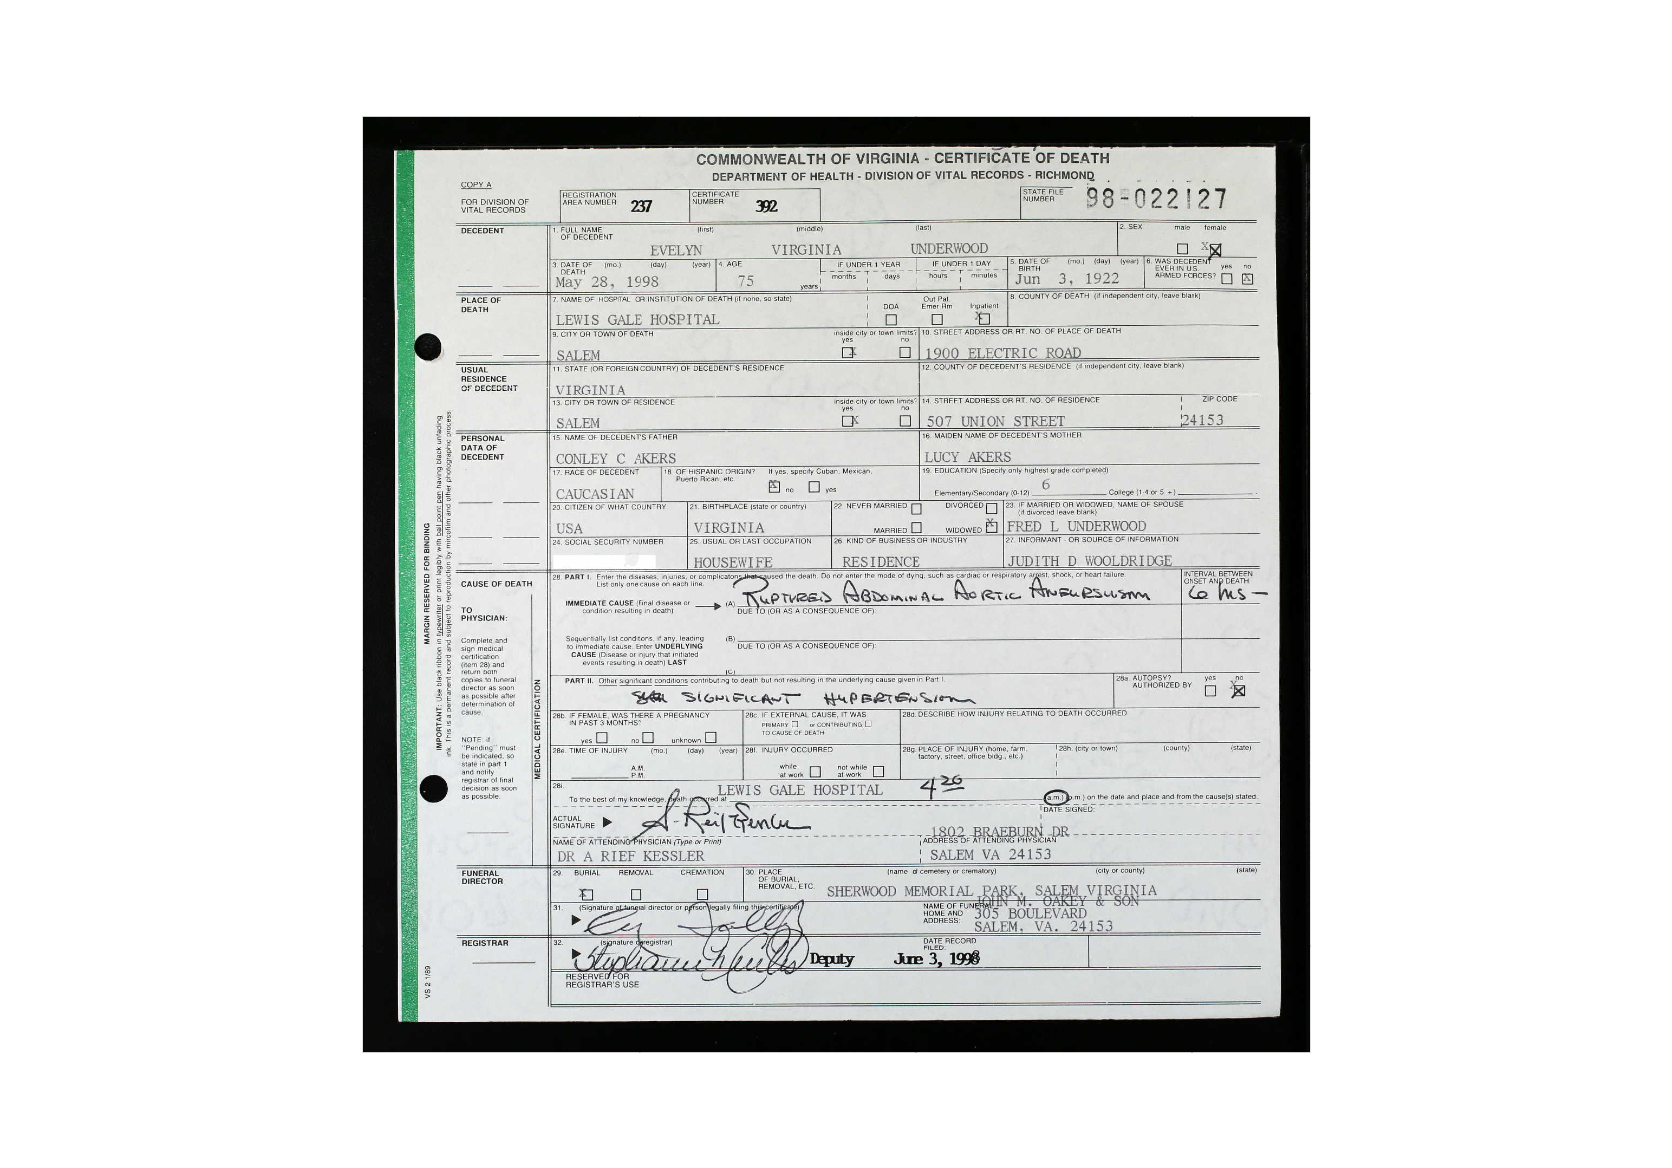 COMMONWEALTH OF VIRGINIA - CERTIFICATE OF DEATH
DEPARTMENT OF HEALTH - DIVISION OF VITAL RECORDS - RICHMOND
COPY A
FOR DIVISION OF
VITAL RECORDS
REGISTRATION
AREA NUMBER 237
CERTIFICATE
NUMBER 392
STATE FILE
NUMBER 98-022127
DECEDENT
1. FULL NAME (first) (middle) (last)
OF DECEDENT
EVELYN VIRGINIA UNDERWOOD
2. SEX male female
X
3. DATE OF (mo.) (day) (year)
DEATH
May 28, 1998
4. AGE
75
years
IF UNDER 1 YEAR
months days
IF UNDER 1 DAY
hours minutes
5. DATE OF (mo.) (day) (year)
BIRTH
Jun 3, 1922
6. WAS DECEDENT
EVER IN U.S.
ARMED FORCES? yes no
X
PLACE OF
DEATH
7. NAME OF HOSPITAL OR INSTITUTION OF DEATH (if none, so state)
LEWIS GALE HOSPITAL
DOA
Out Pat.
Emer Rm
Inpatient
X
8. COUNTY OF DEATH (if independent city, leave blank)
9. CITY OR TOWN OF DEATH
SALEM
inside city or town limits?
yes no
X
10. STREET ADDRESS OR RT. NO. OF PLACE OF DEATH
1900 ELECTRIC ROAD
USUAL
RESIDENCE
OF DECEDENT
11. STATE (OR FOREIGN COUNTRY) OF DECEDENT'S RESIDENCE
VIRGINIA
12. COUNTY OF DECEDENT'S RESIDENCE (if independent city, leave blank)
13. CITY OR TOWN OF RESIDENCE
SALEM
inside city or town limits?
yes no
X
14. STREET ADDRESS OR RT. NO. OF RESIDENCE ZIP CODE
507 UNION STREET 24153
PERSONAL
DATA OF
DECEDENT
15. NAME OF DECEDENT'S FATHER
CONLEY C AKERS
16. MAIDEN NAME OF DECEDENT'S MOTHER
LUCY AKERS
17. RACE OF DECEDENT
CAUCASIAN
18. OF HISPANIC ORIGIN? If yes, specify Cuban, Mexican,
Puerto Rican, etc.
X no yes
19. EDUCATION (Specify only highest grade completed)
Elementary/Secondary (0-12) 6 College (1-4 or 5 +)
20. CITIZEN OF WHAT COUNTRY
USA
21. BIRTHPLACE (state or country)
VIRGINIA
22. NEVER MARRIED DIVORCED
MARRIED WIDOWED X
23. IF MARRIED OR WIDOWED, NAME OF SPOUSE
(if divorced leave blank)
FRED L UNDERWOOD
24. SOCIAL SECURITY NUMBER
25. USUAL OR LAST OCCUPATION
HOUSEWIFE
26. KIND OF BUSINESS OR INDUSTRY
RESIDENCE
27. INFORMANT - OR SOURCE OF INFORMATION
JUDITH D WOOLDRIDGE
CAUSE OF DEATH
TO
PHYSICIAN:
Complete and
sign medical
certification
(item 28) and
return both
copies to funeral
director as soon
as possible after
determination of
cause.
NOTE: if
"Pending" must
be indicated, so
state in part 1
and notify
registrar of final
decision as soon
as possible.
MEDICAL CERTIFICATION
28. PART I. Enter the diseases, injuries, or complications that caused the death. Do not enter the mode of dying, such as cardiac or respiratory arrest, shock, or heart failure.
List only one cause on each line.
INTERVAL BETWEEN
ONSET AND DEATH
IMMEDIATE CAUSE (Final disease or
condition resulting in death)
(A) RUPTURED ABDOMINAL AORTIC ANEURSUSM 6 HRS -
DUE TO (OR AS A CONSEQUENCE OF):
Sequentially list conditions, if any, leading
to immediate cause. Enter UNDERLYING
CAUSE (Disease or injury that initiated
events resulting in death) LAST
(B)
DUE TO (OR AS A CONSEQUENCE OF):
(C)
PART II. Other significant conditions contributing to death but not resulting in the underlying cause given in Part I.
SIGNIFICANT HYPERTENSION
28a. AUTOPSY? yes no
AUTHORIZED BY X
28b. IF FEMALE, WAS THERE A PREGNANCY
IN PAST 3 MONTHS?
yes no unknown
28c. IF EXTERNAL CAUSE, IT WAS
PRIMARY or CONTRIBUTING
TO CAUSE OF DEATH
28d. DESCRIBE HOW INJURY RELATING TO DEATH OCCURRED
28e. TIME OF INJURY (mo.) (day) (year)
A.M.
P.M.
28f. INJURY OCCURRED
while
at work
not while
at work
28g. PLACE OF INJURY (home, farm,
factory, street, office bldg., etc.)
28h. (city or town) (county) (state)
28i.
LEWIS GALE HOSPITAL 4 26
To the best of my knowledge, death occurred at (a.m.) (p.m.) on the date and place and from the cause(s) stated.
ACTUAL
SIGNATURE
DATE SIGNED:
1802 BRAEBURN DR
NAME OF ATTENDING PHYSICIAN (Type or Print)
DR A RIEF KESSLER
ADDRESS OF ATTENDING PHYSICIAN
SALEM VA 24153
FUNERAL
DIRECTOR
29. BURIAL REMOVAL CREMATION
X
30. PLACE
OF BURIAL,
REMOVAL, ETC.
(name of cemetery or crematory) (city or county) (state)
SHERWOOD MEMORIAL PARK, SALEM VIRGINIA
31. (Signature of funeral director or person legally filing this certificate)
NAME OF FUNERAL
HOME AND
ADDRESS:
JOHN M. OAKEY & SON
305 BOULEVARD
SALEM, VA. 24153
REGISTRAR
32. (signature of registrar)
Deputy
DATE RECORD
FILED:
June 3, 1998
RESERVED FOR
REGISTRAR'S USE
VS 2 1/89
MARGIN RESERVED FOR BINDING
IMPORTANT: Use black ribbon in typewriter or print legibly with ball point pen having black unfading
ink. This is a permanent record and subject to reproduction by microfilm and other photographic process